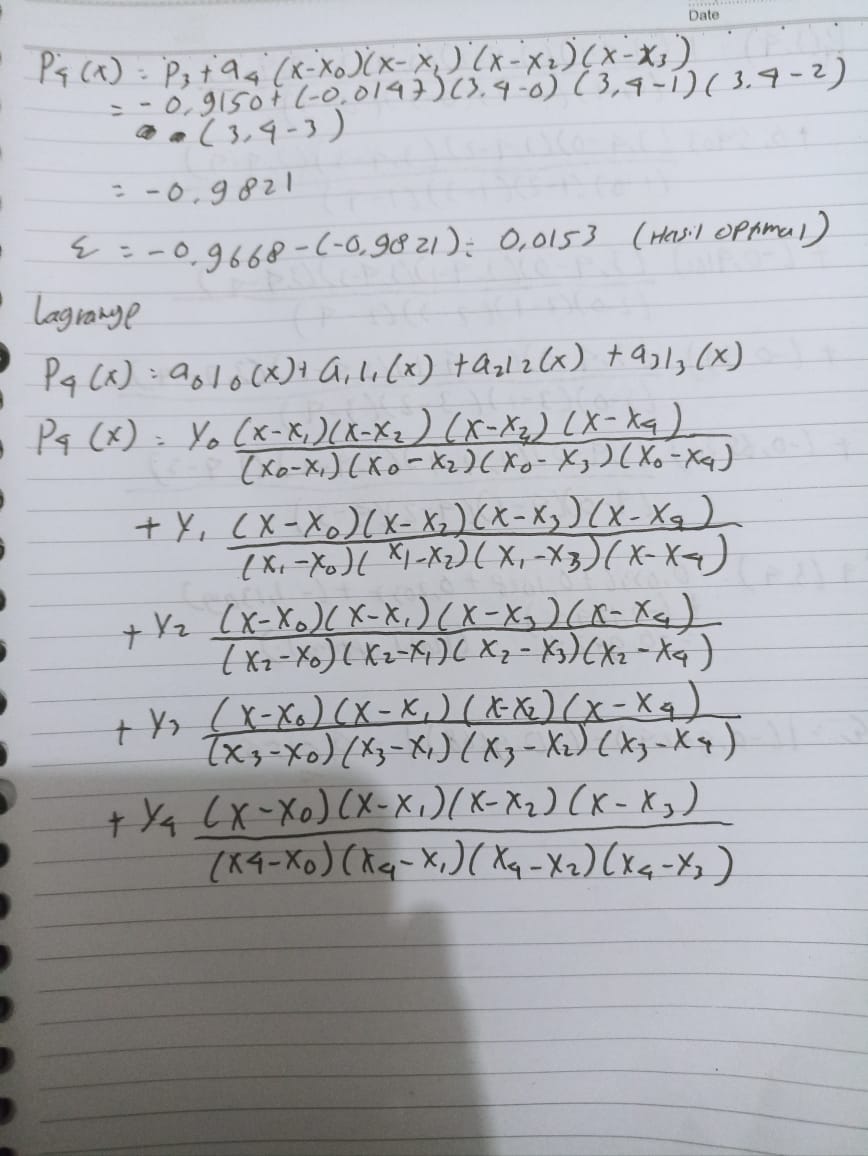 Date
P4(x) = P3 + a4 (x-x0)(x-x1)(x-x2)(x-x3)
= -0,9150 + (-0,0147)(3,4-0)(3,4-1)(3,4-2)
(3,4-3)
= -0,9821
ε = -0,9668-(-0,9821) = 0,0153 (Hasil optimal)
Lagrange
P4(x) = a0l0(x) + a1l1(x) + a2l2(x) + a3l3(x)
P4(x) = Y0 (x-x1)(x-x2)(x-x3)(x-x4)
(x0-x1)(x0-x2)(x0-x3)(x0-x4)
+ Y1 (x-x0)(x-x2)(x-x3)(x-x4)
(x1-x0)(x1-x2)(x1-x3)(x-x4)
+ Y2 (x-x0)(x-x1)(x-x3)(x-x4)
(x2-x0)(x2-x1)(x2-x3)(x2-x4)
+ Y3 (x-x0)(x-x1)(x-x2)(x-x4)
(x3-x0)(x3-x1)(x3-x2)(x3-x4)
+ Y4 (x-x0)(x-x1)(x-x2)(x-x3)
(x4-x0)(x4-x1)(x4-x2)(x4-x3)